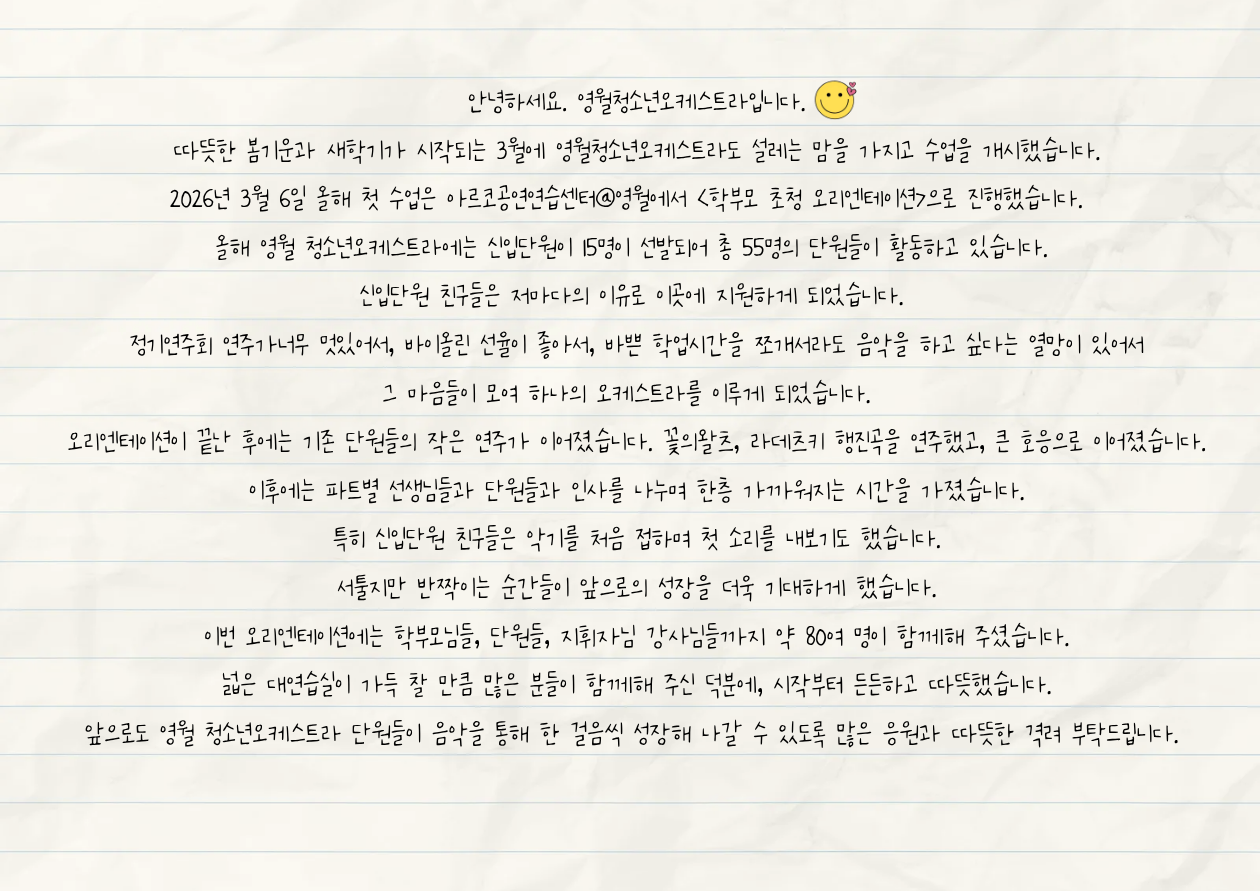 안녕하세요. 영월청소년오케스트라입니다.
따뜻한 봄기운과 새학기가 시작되는 3월에 영월청소년오케스트라도 설레는 맘을 가지고 수업을 개시했습니다.
2026년 3월 6일 올해 첫 수업은 아르코공연연습센터@영월에서 <학부모 초청 오리엔테이션>으로 진행했습니다.
올해 영월 청소년오케스트라에는 신입단원이 15명이 선발되어 총 55명의 단원들이 활동하고 있습니다.
신입단원 친구들은 저마다의 이유로 이곳에 지원하게 되었습니다.
정기연주회 연주가너무 멋있어서, 바이올린 선율이 좋아서, 바쁜 학업시간을 쪼개서라도 음악을 하고 싶다는 열망이 있어서
그 마음들이 모여 하나의 오케스트라를 이루게 되었습니다.
오리엔테이션이 끝난 후에는 기존 단원들의 작은 연주가 이어졌습니다. 꽃의왈츠, 라데츠키 행진곡을 연주했고, 큰 호응으로 이어졌습니다.
이후에는 파트별 선생님들과 단원들과 인사를 나누며 한층 가까워지는 시간을 가졌습니다.
특히 신입단원 친구들은 악기를 처음 접하며 첫 소리를 내보기도 했습니다.
서툴지만 반짝이는 순간들이 앞으로의 성장을 더욱 기대하게 했습니다.
이번 오리엔테이션에는 학부모님들, 단원들, 지휘자님 강사님들까지 약 80여 명이 함께해 주셨습니다.
넓은 대연습실이 가득 찰 만큼 많은 분들이 함께해 주신 덕분에, 시작부터 든든하고 따뜻했습니다.
앞으로도 영월 청소년오케스트라 단원들이 음악을 통해 한 걸음씩 성장해 나갈 수 있도록 많은 응원과 따뜻한 격려 부탁드립니다.